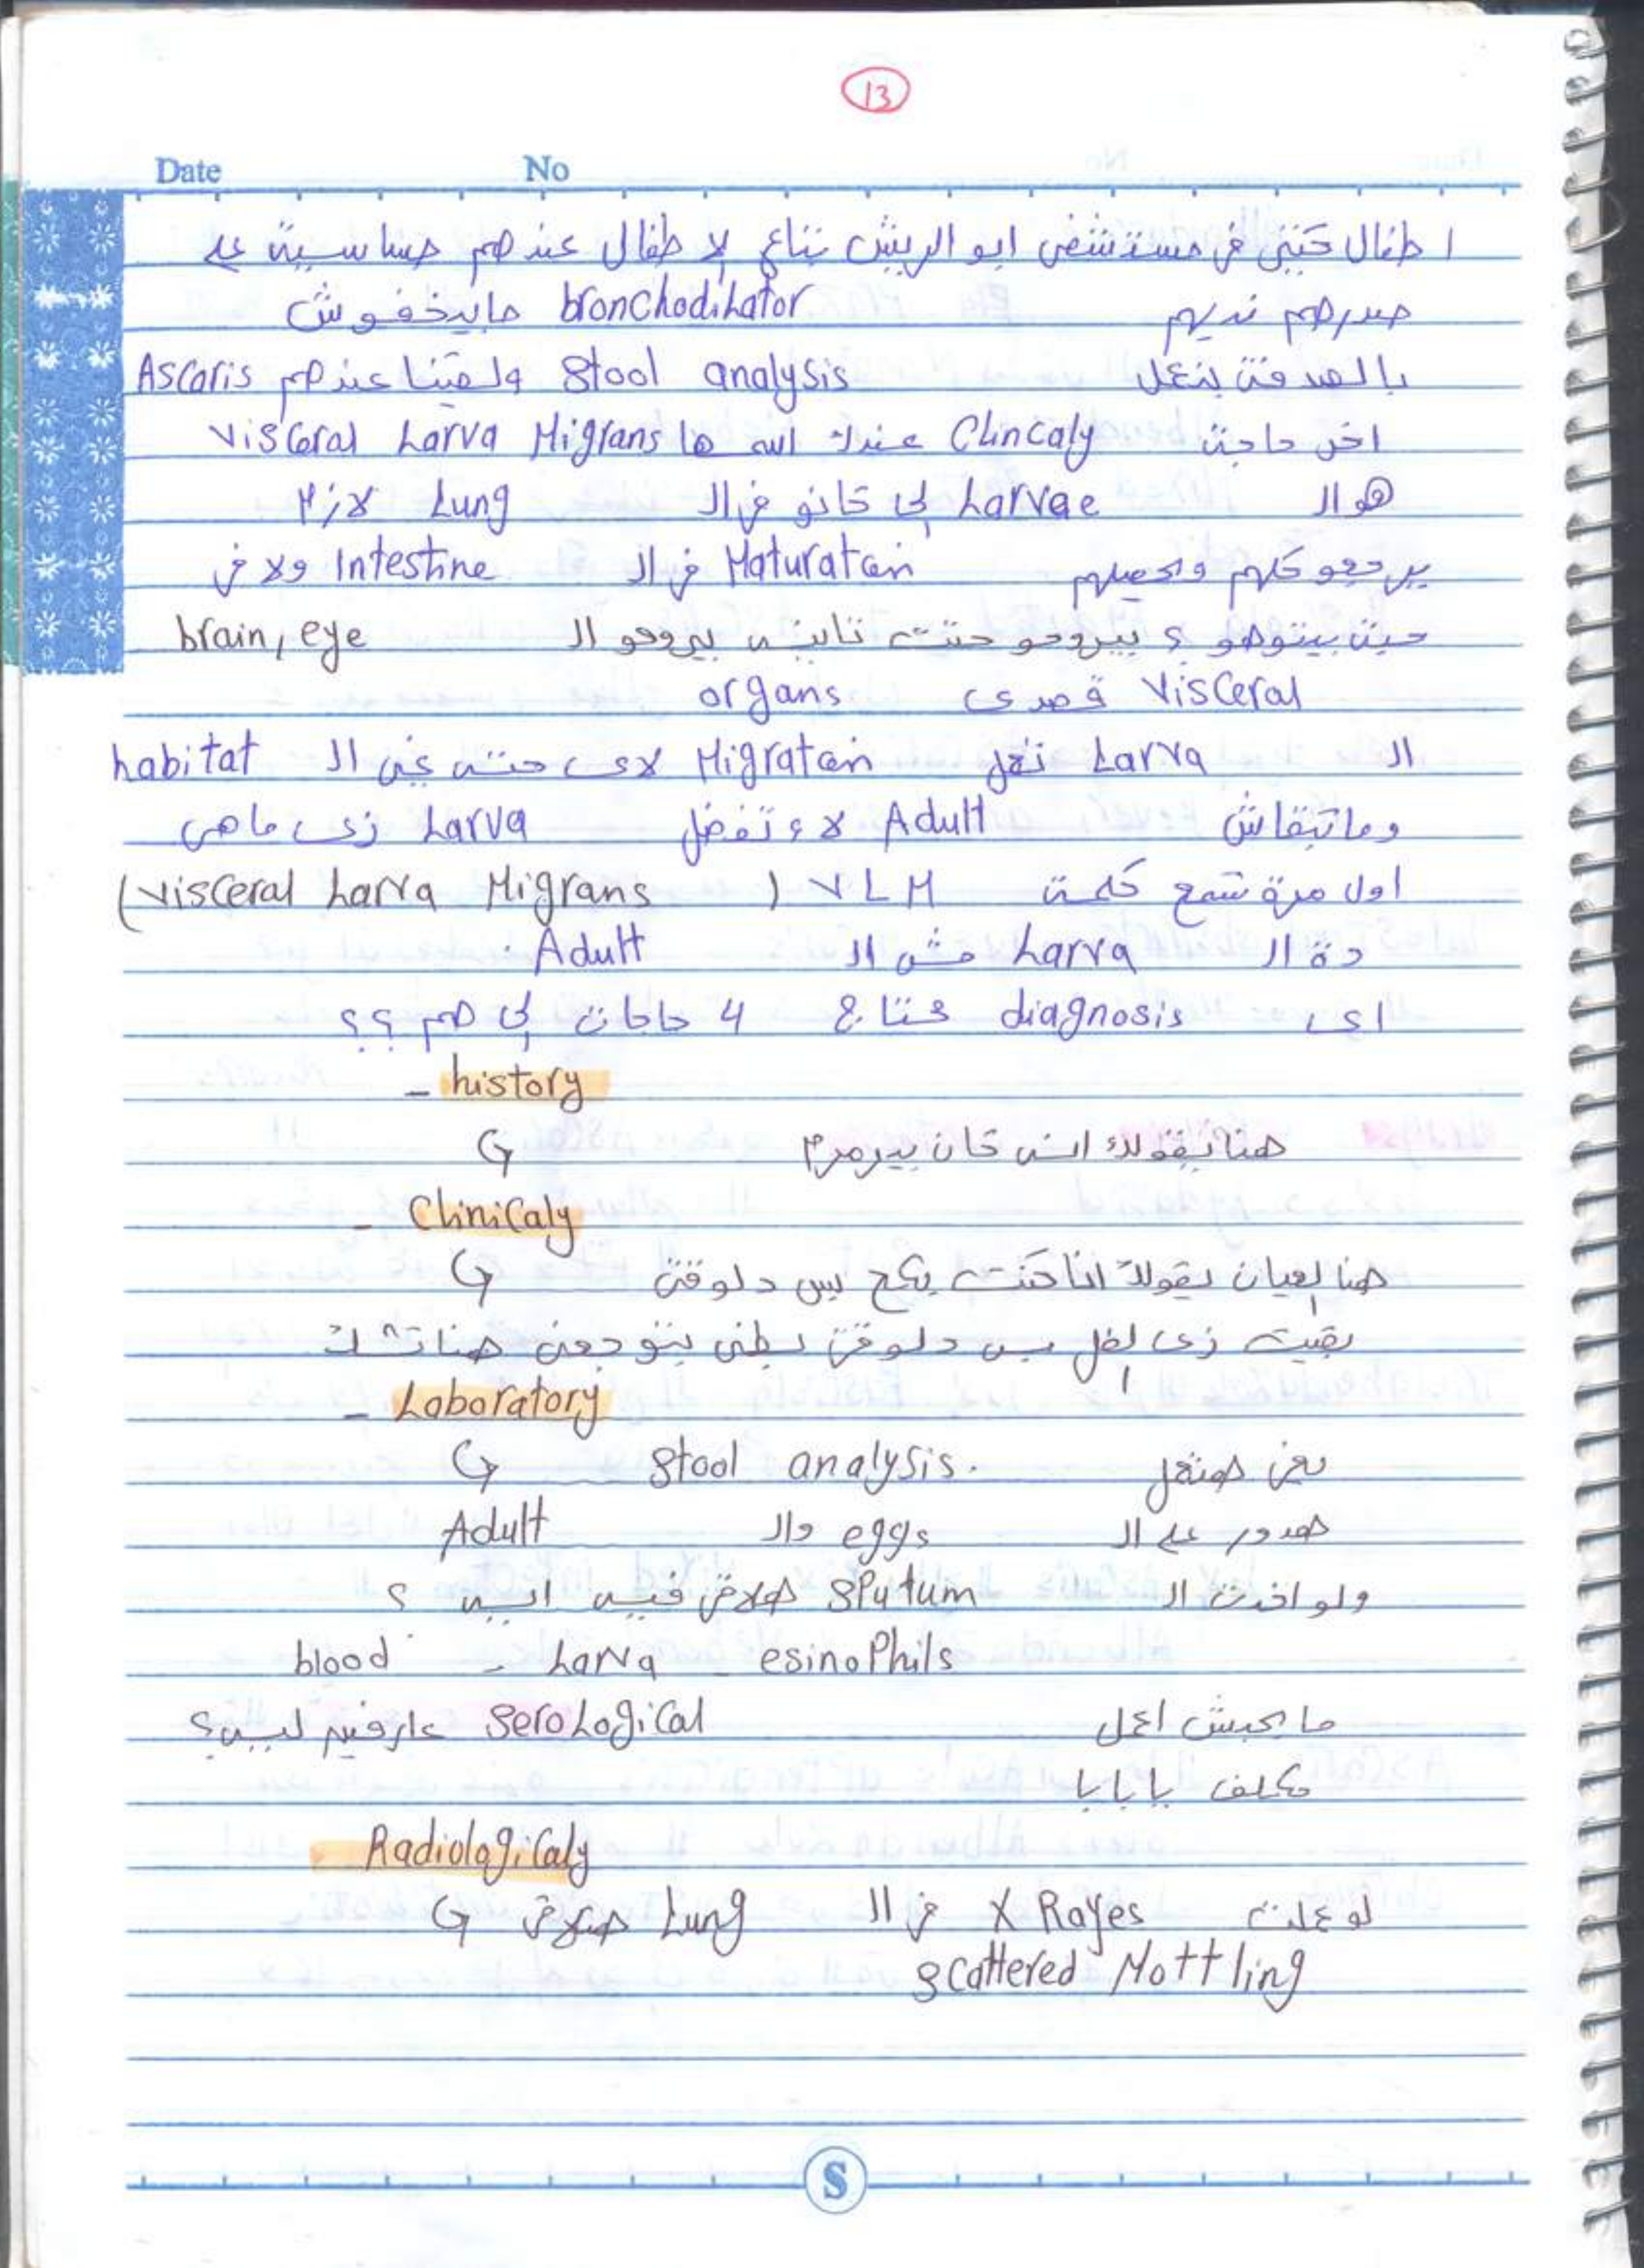 13
Date No
اطفال كتير في مستشفى ابو الريش بتاع الاطفال عندهم حساسية على
صدرهم نديهم bronchodilator مابيخفوش
بالصدفة بنعمل Stool analysis ولقينا عندهم Ascaris
اخر حاجة Clincaly عندك اسمها Visceral Larva Migrans
هو ال Larvae إلي كانو في ال Lung لازم
يرجعو كلهم ويحصلهم Maturation في ال Intestine ولا في
حيث بيتوهو ؟ بيروحو حتت تانيه بيروحو ال brain, eye
Visceral قصدى organs
ال Larva تفعل Migration لاى حته غير ال habitat
وماتبقاش Adult لاء تفضل Larva زى ماهى
اول مرة نسمع كلمة VLM (Visceral Larva Migrans)
دة ال Larva مش ال Adult
اى diagnosis محتاج 4 حاجات إلي هم ؟؟
- history
هنا نقولك انه كان بيرمرم
- Clinicaly
هنا العيان يقولك اناكنت بكح بس دلوقتى
بقيت زى الفل بس دلوقتى بطنى بتوجعنى هنا تشك
- Laboratory
يعنى هنعمل Stool analysis.
هدور على ال eggs وال Adult
ولو اخدت ال Sputum هلاقى فيه ايه ؟
esinophils - Larva - blood
مايجيش اعمل Serological عارفين ليه؟
مكلف يا بابا
- Radiologicaly
لو عملت X Rayes في ال Lung هنلاقى
Scattered Mottling
S